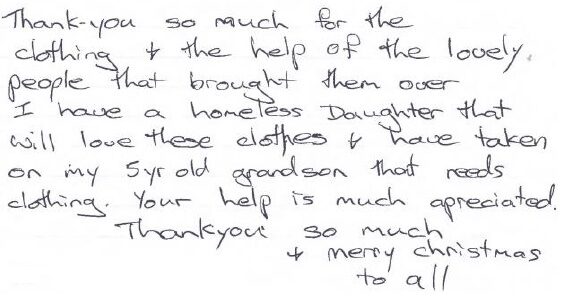 Thank-you so much for the
clothing & the help of the lovely
people that brought them over
I have a homeless Daughter that
will love these clothes & have taken
on my 5yr old grandson that needs
clothing. Your help is much apreciated.
Thankyou so much
& merry christmas
to all